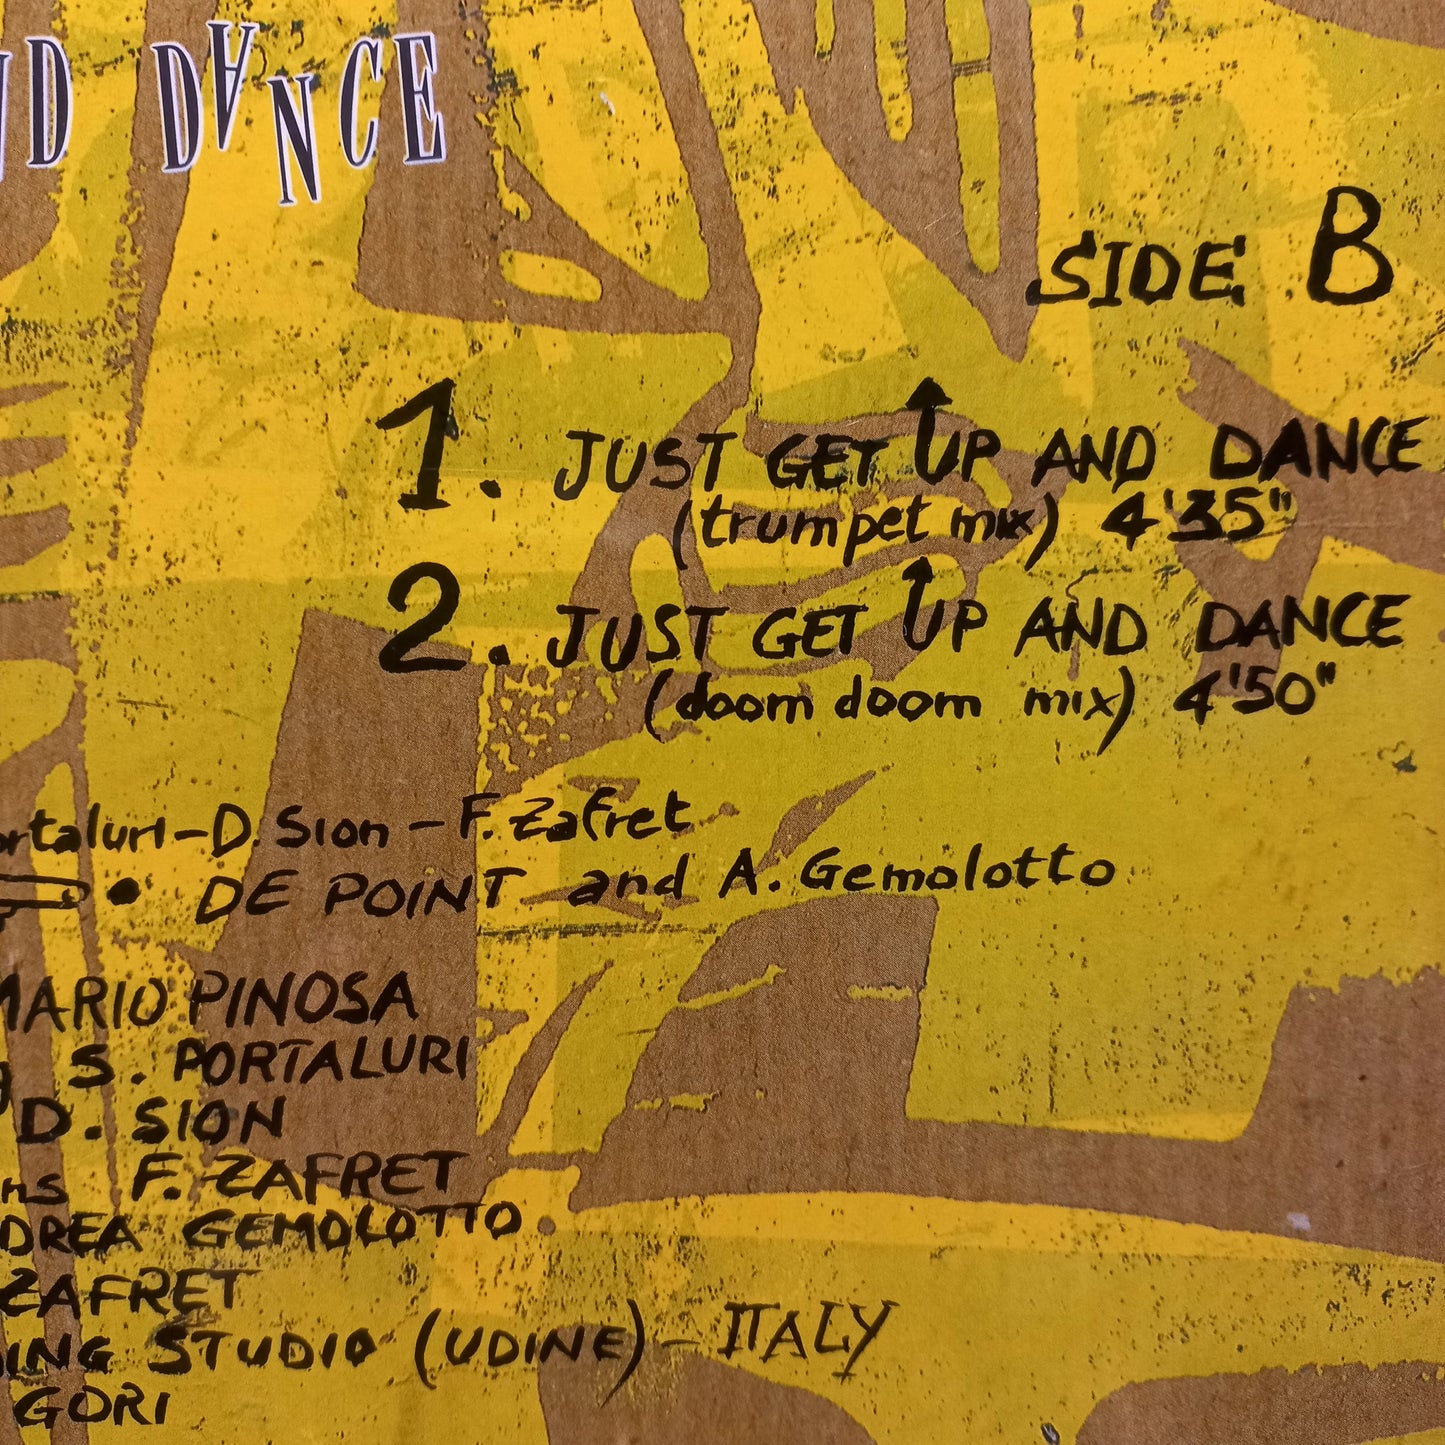 ND DANCE
SIDE B
1. JUST GET UP AND DANCE
(trumpet mix) 4'35"
2. JUST GET UP AND DANCE
(doom doom mix) 4'50"
ortaluri-D. Sion-F. Zafret
• DE POINT and A. Gemolotto
MARIO PINOSA
S. PORTALURI
D. SION
ns F. ZAFRET
DREA GEMOLOTTO
ZAFRET
ING STUDIO (UDINE) - ITALY
GORI